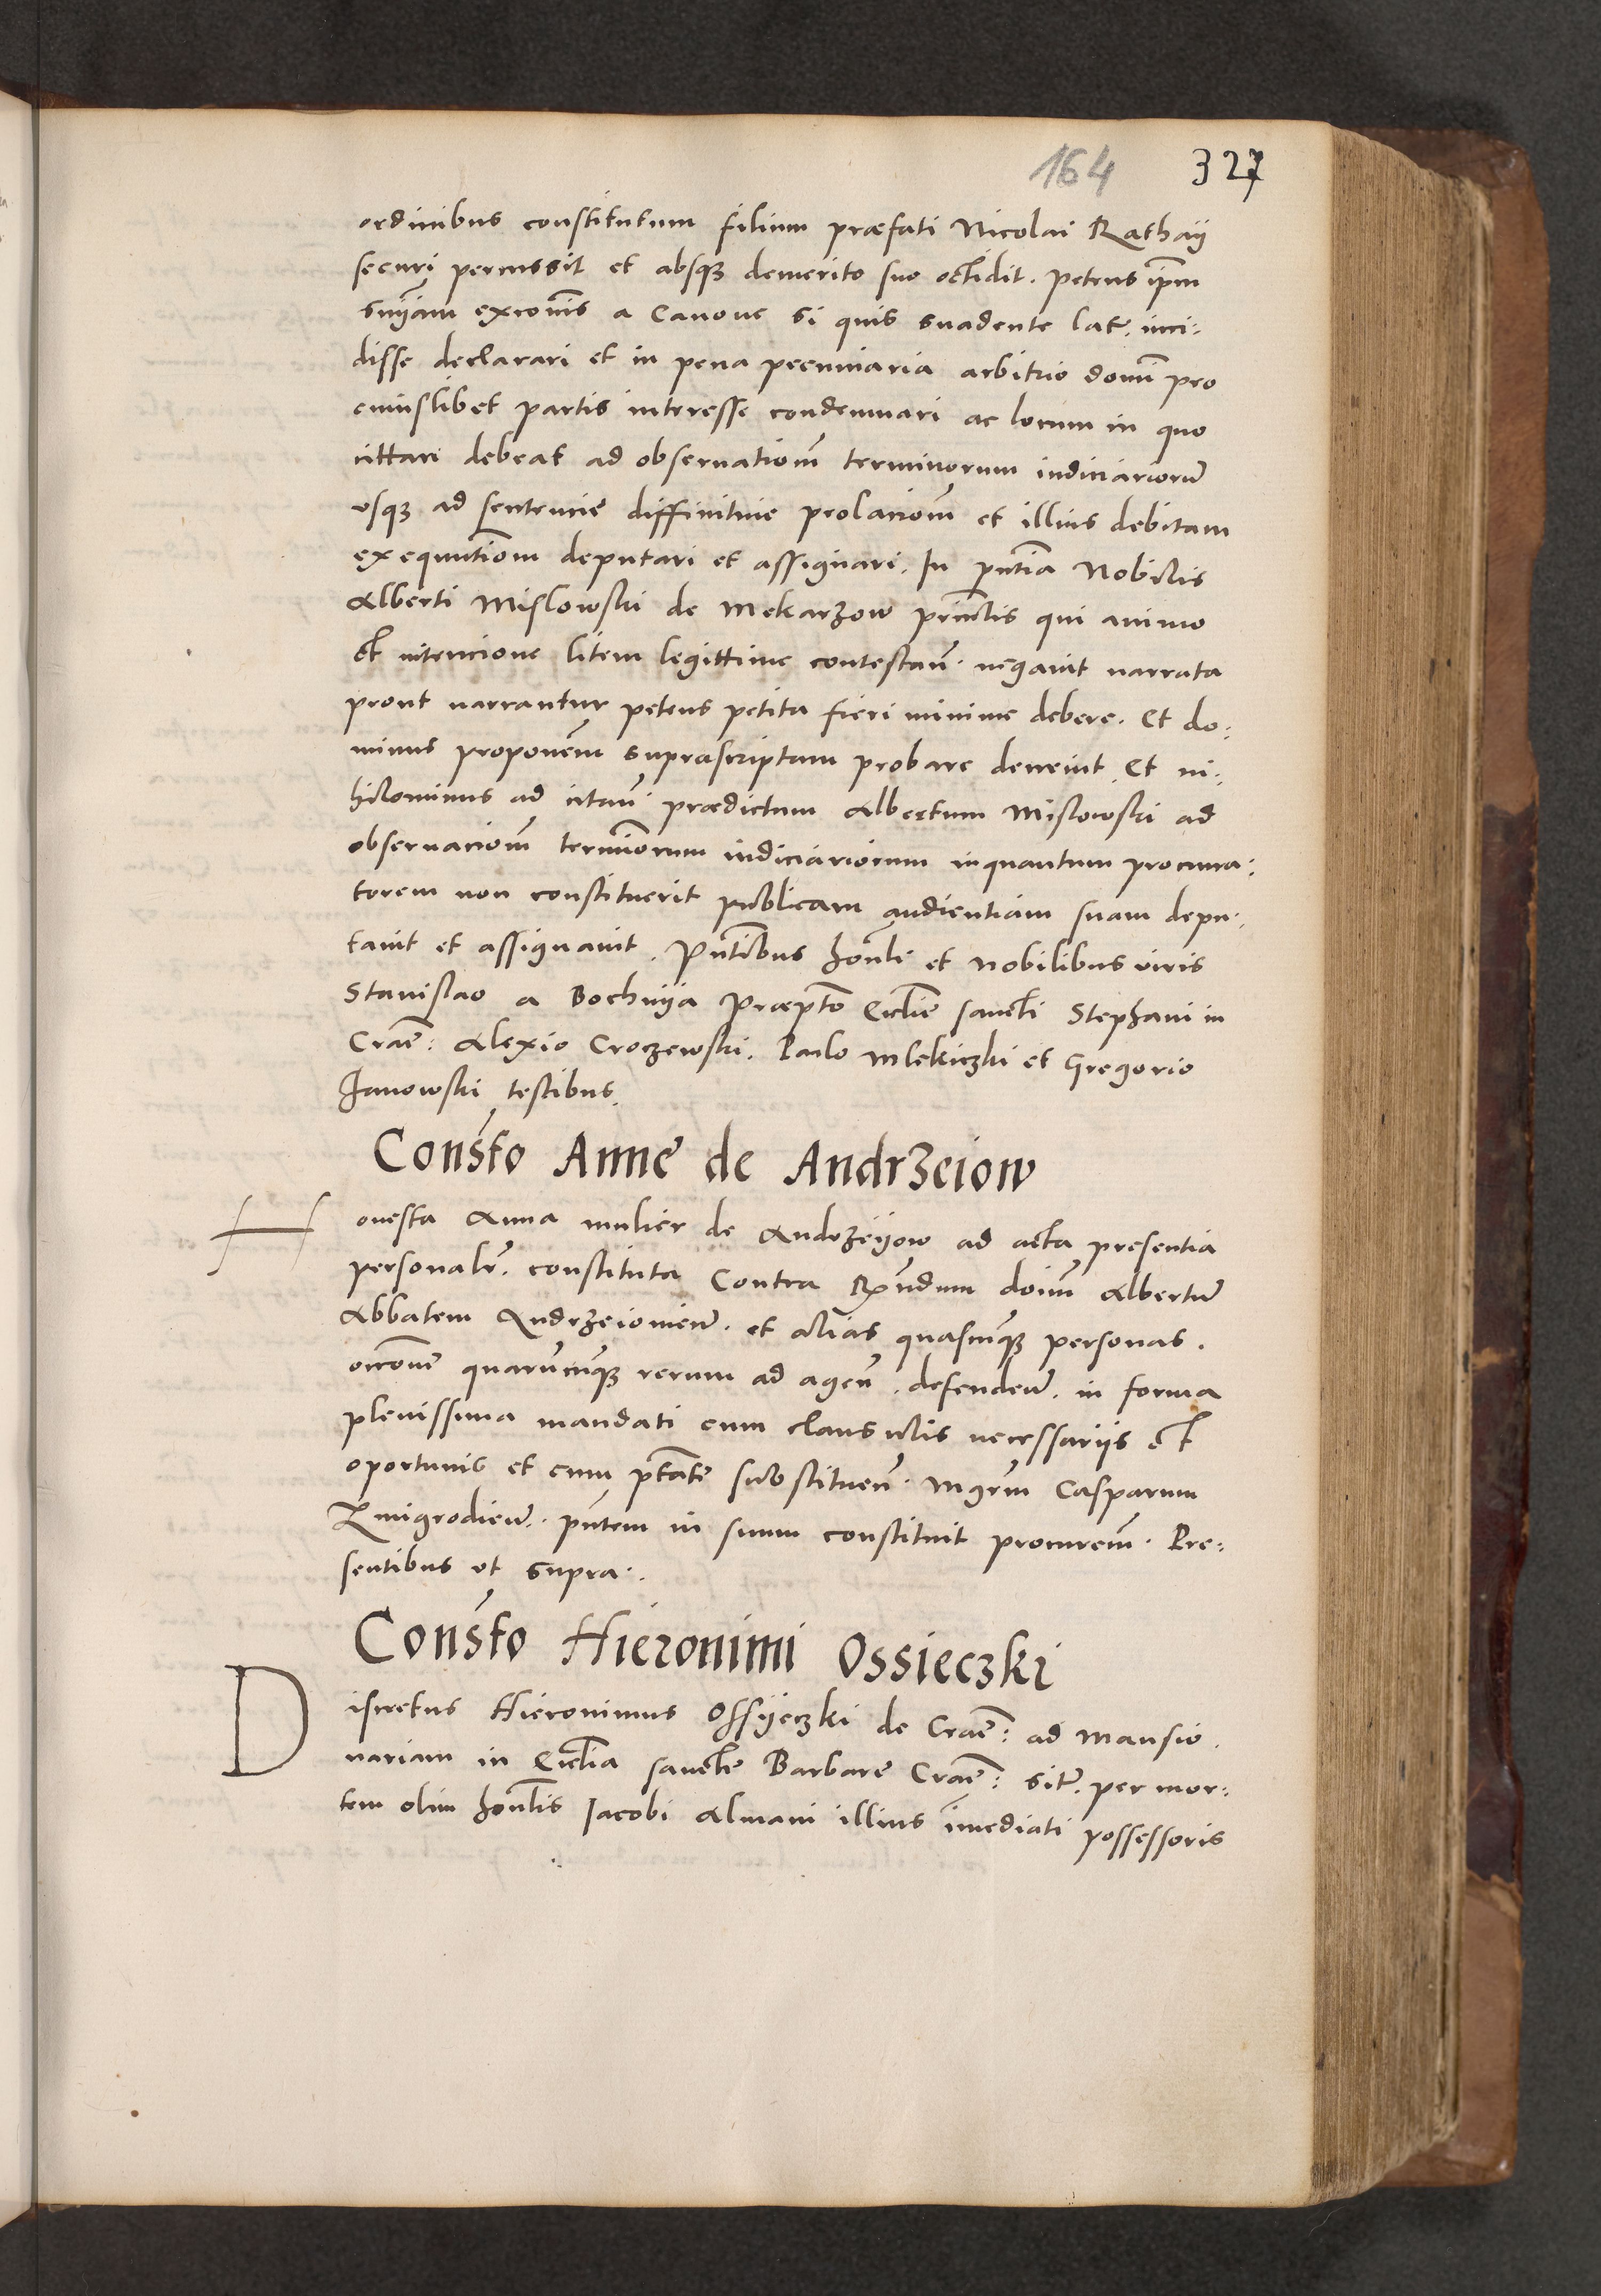 164 327
ordinibus constitutum filium præfati Nicolai Rathaij
securi percussit et absq; demerito suo occidit. Petens ipm
snĩam excoĩs a Canone si quis suadente lat. inci:
disse declarari et in pena pecuniaria arbitrio domĩ pro
cuiuslibet partis interesse condemnari ac locum in quo
cittari debeat ad observationẽ terminorum iudiciariorũ
vsq; ad sentencie diffinitiue prolacionẽ et illius debitam
exequutionem deputari et assignari. In pñtia Nobilis
Alberti Mislowski de Mekarzow principlis qui animo
et intencione litem legittime contestañ. negauit narrata
prout narrantur petens petita fieri minime debere. Et do:
minus proponẽm suprascriptam probare decreuit. Et ni:
hilominus ad citañ. prædictum Albertum Mislowski ad
obseruacionẽ terminorum iudiciariorum inquantum procura:
torem non constituerit publicam audientiam suam depu:
tauit et assignauit. Pñtibus honli et Nobilibus viris
Stanislao a Bochnija Præpto Ecclie sancti Stephani in
Crac̃: Alexio Croczewski. Paulo Mlekiczki et Gregorio
Janowski testibus.
Consto Anne de Andrzeiow
Honesta Anna mulier de Andrzeijow ad acta presentia
personalr̃. constituta Contra Rñdum doim Albertũ
Abbatem Andrzeiouieñ. et alias quascunq; personas.
occõne quarũcunq; rerum ad ageñ. defendeñ. in forma
plenissima mandati cum clausulis necessarijs et
oportunis et cum ptate substitueñ. Mgrm Casparum
Zmigrodieñ. pñtem in suum constituit procurem̃. Pre:
sentibus vt supra.
Consto Hieronimi Ossieczki
Discretus Hieronimus Ossijeczki de Crac̃: ad Mansio.
nariam in Ecclia sancte Barbare Crac̃: sit̃. per mor:
tem olim honlis Jacobi Almani illius imediati possessoris